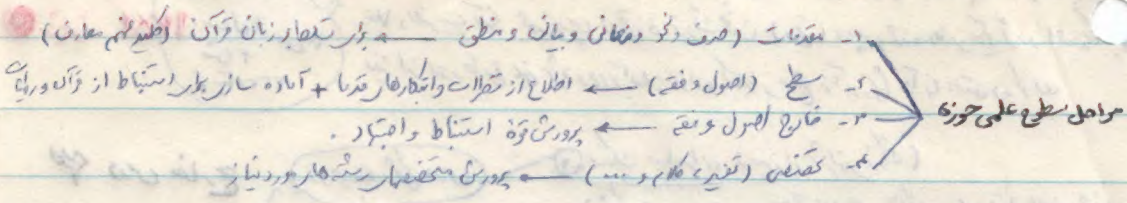 مراحل سطوح علمی حوزه
۱- مقدمات (صرف و نحو و معانی و بیان و منطق ← برای تسلط بر زبان قرآن (کلید فهم معارف)
۲- سطح (اصول و فقه) ← اطلاع از نظرات و ابتکارهای قدما + آماده سازی برای استنباط از قرآن و روایات
۳- خارج اصول و فقه ← پرورش قوهٔ استنباط و اجتهاد .
۴- تخصصی (تفسیر، کلام و ...) ← پرورش متخصصهای رشته های مورد نیاز